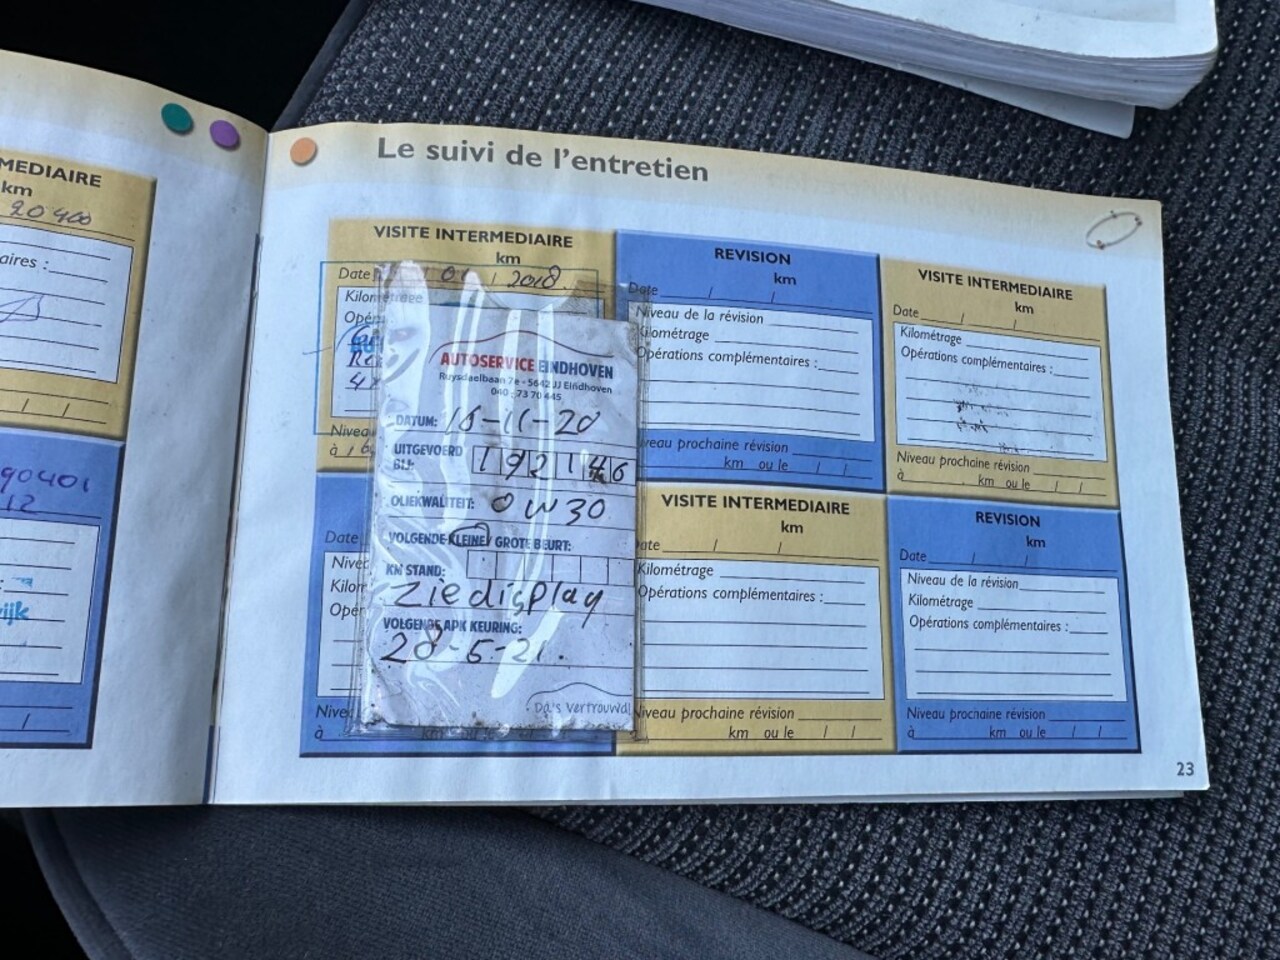 MEDIAIRE
km
20400
aires :
90401
12
ijk
Le suivi de l'entretien
VISITE INTERMEDIAIRE
km
Date 2018
Kilométrage
Opér
Nivea
à
AUTOSERVICE EINDHOVEN
Ruysdaelbaan 7e - 5642 JJ Eindhoven
DATUM: 16-11-20
UITGEVOERD
BIJ: 192146
OLIEKWALITEIT: 0W30
VOLGENDE KLEINE / GROTE BEURT:
KM STAND:
Zie display
VOLGENDE APK KEURING:
28-5-21.
Da's Vertrouwd!
Date
Nive
Kilor
Opér
Nivea
à
REVISION
km
Date / /
Niveau de la révision
Kilométrage
Opérations complémentaires :
iveau prochaine révision
km ou le / /
VISITE INTERMEDIAIRE
km
Date / /
Kilométrage
Opérations complémentaires :
Niveau prochaine révision
à km ou le / /
VISITE INTERMEDIAIRE
km
ate / /
Kilométrage
Opérations complémentaires :
Niveau prochaine révision
km ou le / /
REVISION
km
Date / /
Niveau de la révision
Kilométrage
Opérations complémentaires :
Niveau prochaine révision
à km ou le / /
23